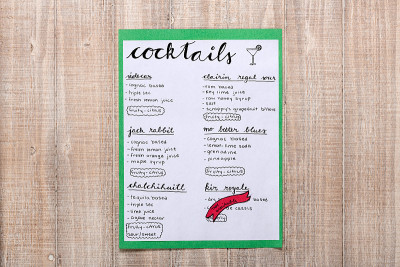 cocktails
sidecar
- cognac based
- triple sec
- fresh lemon juice
fruity-citrus
jack rabbit
- cognac based
- fresh lemon juice
- fresh orange juice
- maple syrup
fruity-citrus
chalchihuitl
- tequila based
- triple sec
- lime juice
- agave nectar
fruity-citrus
sour/sweet
clairin regal sour
- rum based
- key lime juice
- raw honey syrup
- salt
- scrappy's grapefruit bitters
fruity-citrus
mo better blues
- cognac based
- lemon-lime soda
- grenadine
- pineapple
fruity-citrus
kir royale
based
cassis